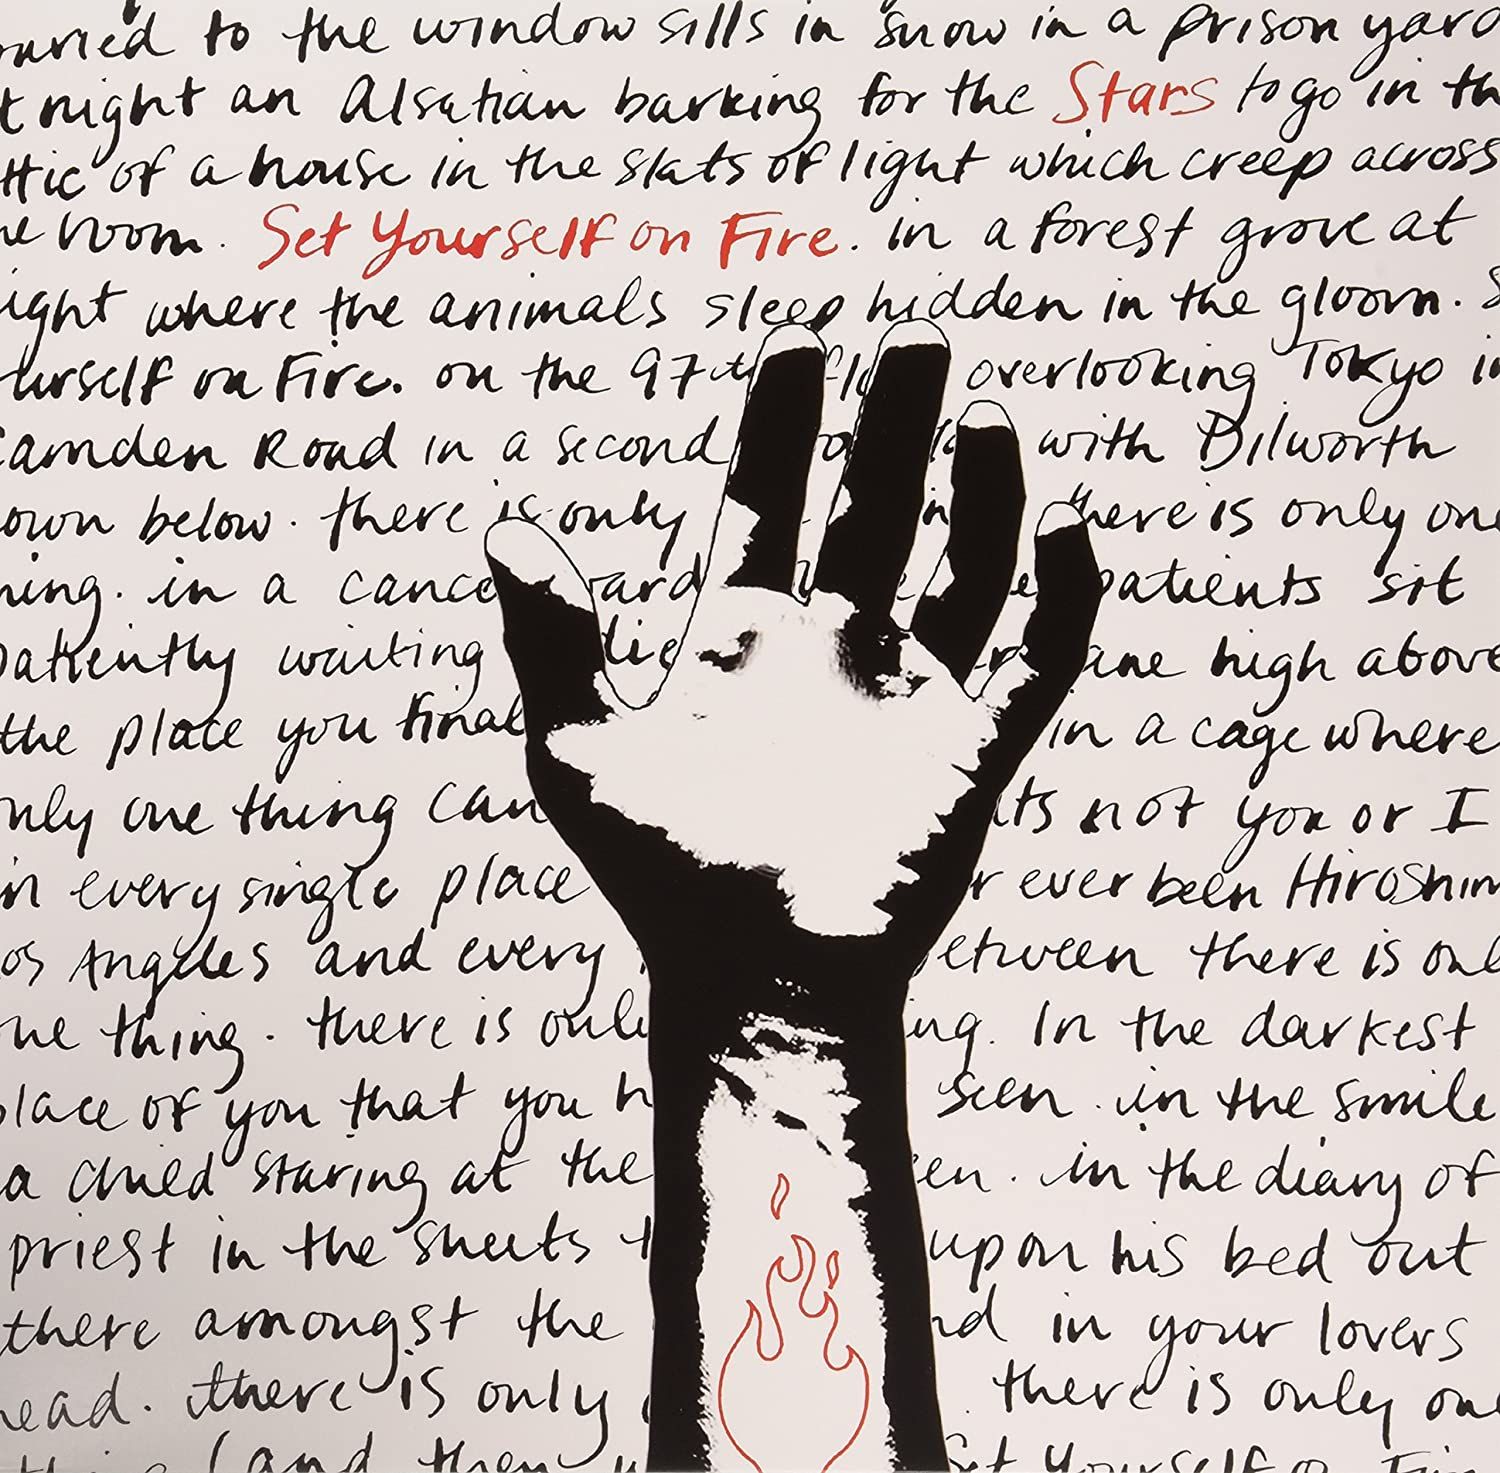 to the window sills in snow in a prison yard
night an Alsatian barking for the Stars to go in
of a house in the slats of light which creep across
room. Set Yourself on Fire. in a forest grove at
where the animals sleep hidden in the gloom.
on Fire. on the 97th overlooking Tokyo in
Camden Road in a second with Dilworth
below. there is only there is only one
in a patients sit
patiently waiting high above
the place you in a cage where
only one thing can its not you or I
in every single place ever been Hiroshim
Los Angeles and every between there is onl
thing. there is only In the darkest
place of you that you seen. in the smile
a child staring at the in the diary of
priest in the sheets upon his bed out
there amongst the in your lovers
head. there is only there is only one
(and then Set Yourself on